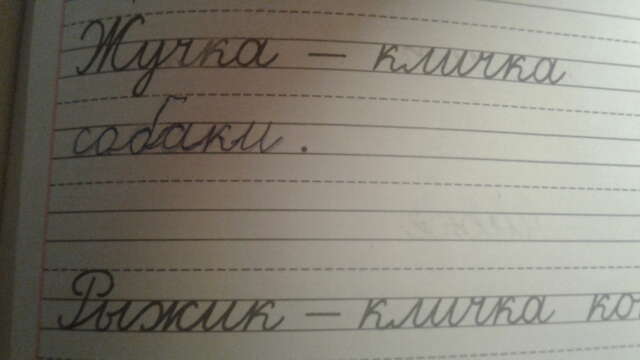 Жучка – кличка
собаки.
Рыжик – кличка